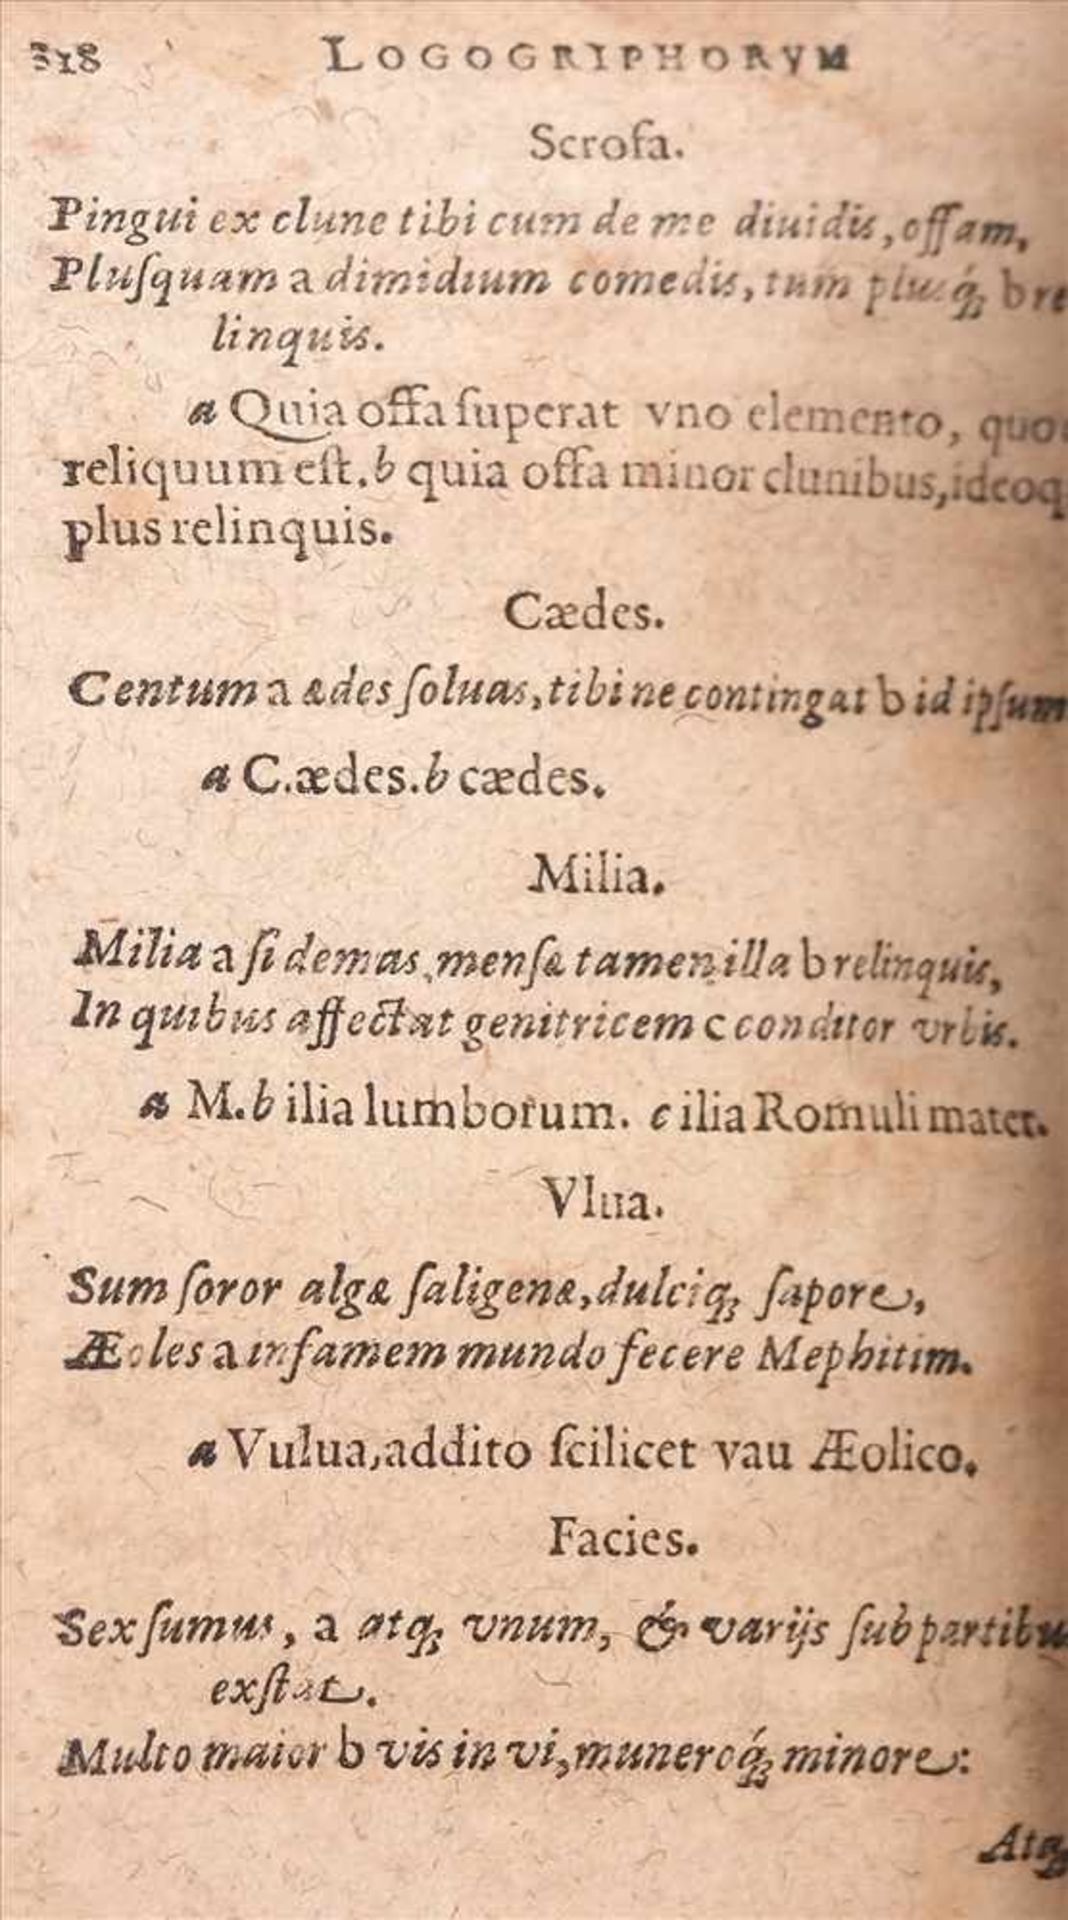 318 LOGOGRIPHORVM
Scrofa.
Pingui ex clune tibi cum de me diuidis, offam,
Pluſquam a dimidium comedis, tum pluſq́; b re
linquis.
a Quia offa ſuperat vno elemento, quo
reliquum eſt. b quia offa minor clunibus, ideoq
plus relinquis.
Cædes.
Centum a ædes ſoluas, tibi ne contingat b id ipſum
a C. ædes. b cædes.
Milia.
Milia a ſi demas, menſæ tamen illa b relinquis,
In quibus affectat genitricem c conditor vrbis.
a M. b ilia lumborum. c ilia Romuli mater.
Vlua.
Sum ſoror algæ ſaligenæ, dulciq; ſapore,
Æoles a infamem mundo fecere Mephitim.
a Vulua, addito ſcilicet vau Æolico.
Facies.
Sex ſumus, a atq; vnum, & varijs ſub partibu
exſtat.
Multo maior b vis in vi, numeroq́; minore:
Atq;